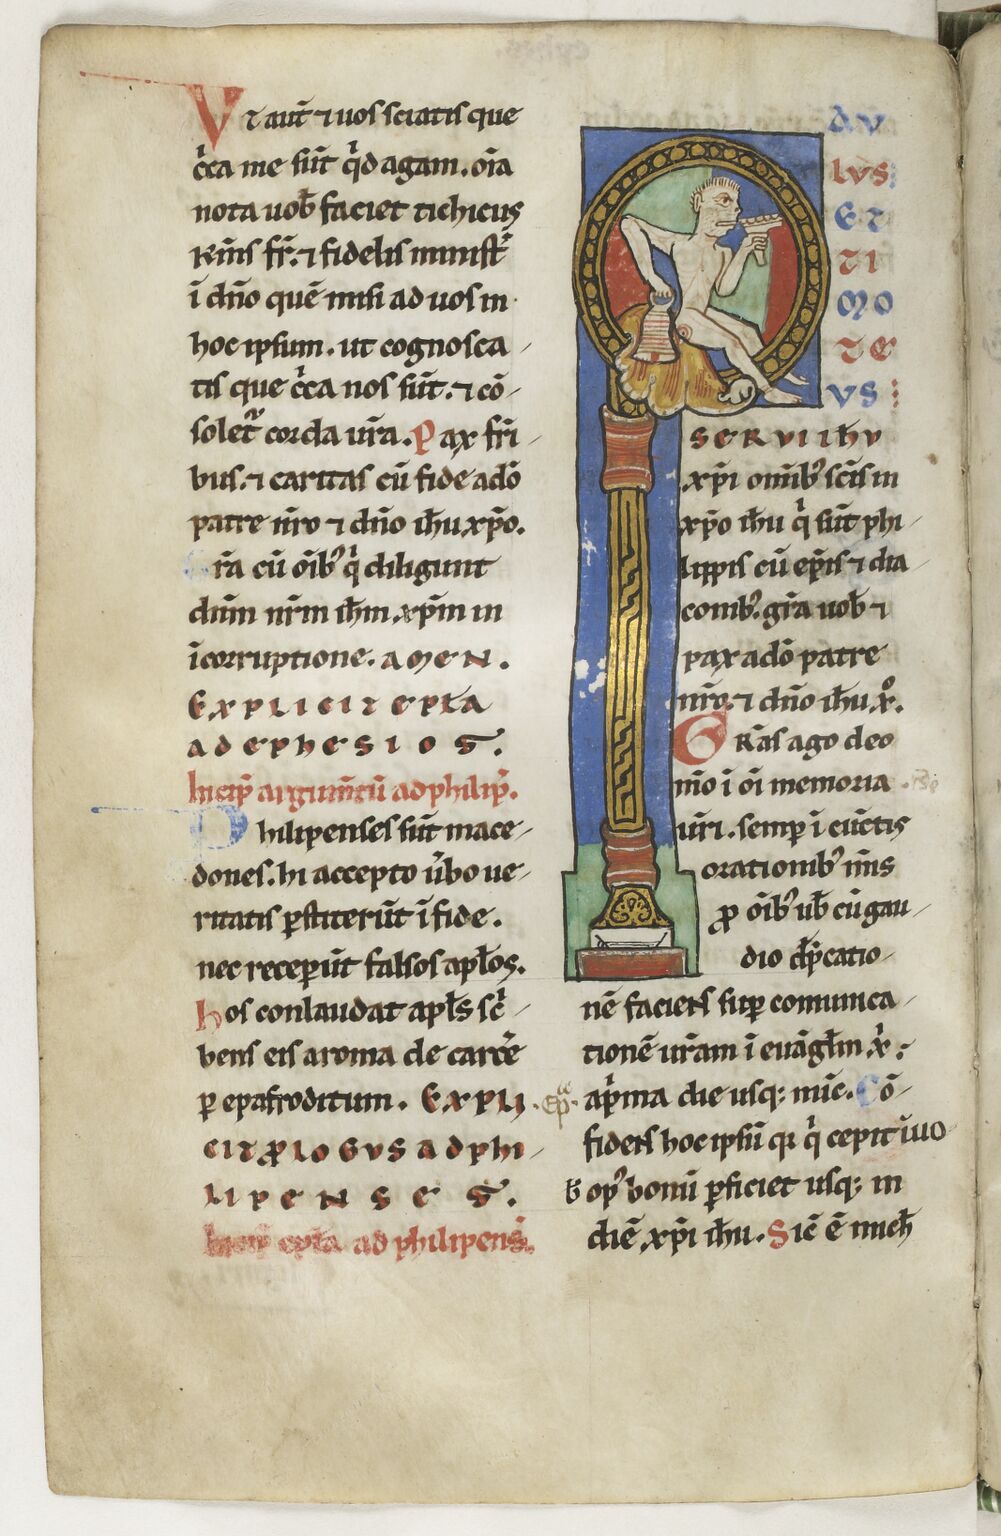 Vt aut̄ ⁊ uos sciatis que
c̓ca me sūt q̓d agam. oīa
nota uob̄ faciet tichicus
kīns fr̄. ⁊ fidelis minist̓
ī dn̄o quē misi ad uos in
hoc ipsum. ut cognosca-
tis que c̓ca nos sūt. ⁊ cō-
solet᷑ corda ur̄a. Pax fr̄i-
bus. ⁊ caritas cū fide a dō
patre nr̄o ⁊ dn̄o ih̄u xp̄o.
Gr̄a cū oīb᷒ q̓ diligunt
dn̄m nr̄m ih̄m xp̄m in
īcorruptione. AMEN.
EXPLICIT EPLA
AD EPHESIOS.
Incip̄ argum̄tū ad philip̄.
Philipenses sūt mace-
dones. hi accepto ūbo ue-
ritatis ꝑstiterūt ī fide.
nec receperūt falsos apl̄os.
hos conlaudat apl̄s sc̓-
bens eis a roma de carc̄e
ꝑ epafroditum. EXPLI-
CIT PLOGVS AD PHI-
LIPENSES.
Incip̄ epl̄a ad philipens̄.
PAV
LVS
ET
TI
MO
TE
VS
SERVI IH̄V
xp̄i omīb᷒ sc̄is in
xp̄o ih̄u q̓ sūt phi-
lippis cū ep̄is ⁊ dia-
conib᷒. gr̄a uob̄ ⁊
pax a dō patre
nr̄o. ⁊ dn̄o ih̄u xͦ.
Grās ago deo
mō ī oī memoria
ur̄i. semꝑ ī cūctis
orationib᷒ mīs
ꝓ oīb᷒ ub̄ cū gau-
dio dp̄catio-
nē faciens suꝑ comunica-
tionē ur̄am ī euāgl̄m x̓.
a p̓ma die usq; nūc. Cō-
fidens hoc ipsū q̓ q̓ cepit ī uo-
b᷒ op᷒ bonū ꝑficiet usq; in
diē xp̄i ih̄u. Sic̄ ē mich̄